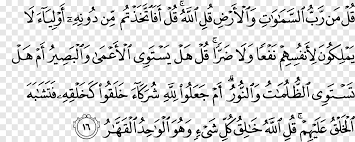 قُلْ مَن رَّبُّ السَّمَاوَاتِ وَالْأَرْضِ قُلِ اللَّهُ ۚ قُلْ أَفَاتَّخَذْتُم مِّن دُونِهِ أَوْلِيَاءَ لَا
يَمْلِكُونَ لِأَنفُسِهِمْ نَفْعًا وَلَا ضَرًّا ۚ قُلْ هَلْ يَسْتَوِي الْأَعْمَىٰ وَالْبَصِيرُ أَمْ هَلْ
تَسْتَوِي الظُّلُمَاتُ وَالنُّورُ ۗ أَمْ جَعَلُوا لِلَّهِ شُرَكَاءَ خَلَقُوا كَخَلْقِهِ فَتَشَابَهَ
الْخَلْقُ عَلَيْهِمْ ۚ قُلِ اللَّهُ خَالِقُ كُلِّ شَيْءٍ وَهُوَ الْوَاحِدُ الْقَهَّارُ ١٦